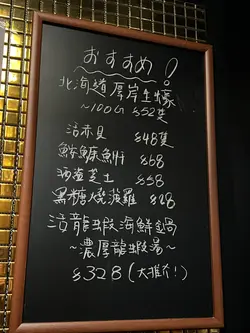 おすすめ!
北海道厚岸生蠔
~100G $52隻
活赤貝 $48隻
鮟鱇魚肝 $68
酒盗芝士 $58
黒糖燒菠蘿 $28
活龍蝦海鮮鍋
~濃厚龍蝦湯~
$328(大推介!)